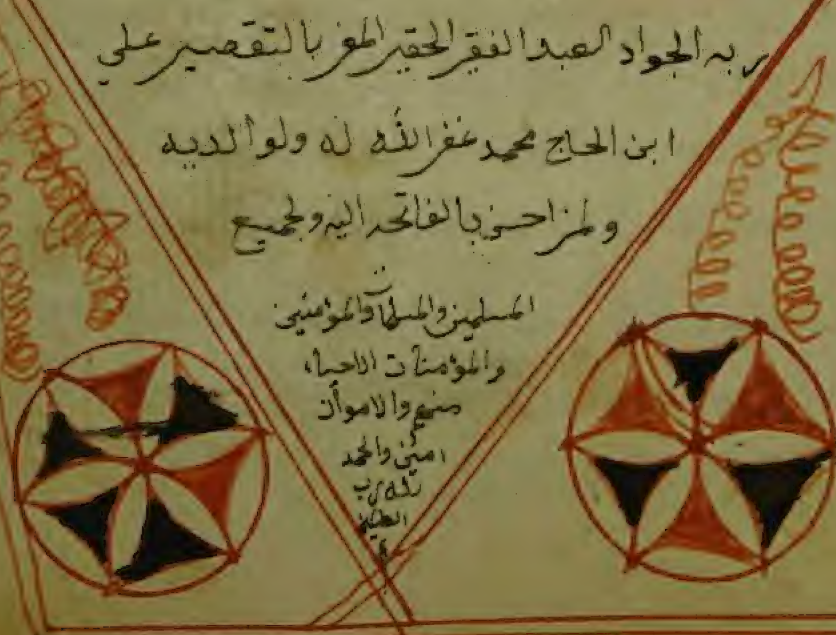 ربه الجواد العبد الفقير الحقير المقر بالتقصير علي
ابن الحاج محمد غفر الله له ولوالديه
ولمن احسن بالفاتحه اليه ولجميع
المسلمين والمسلمات والمؤمنين
والمؤمنات الاحياء
منهم والاموات
امين والحمد
لله رب
العالمين